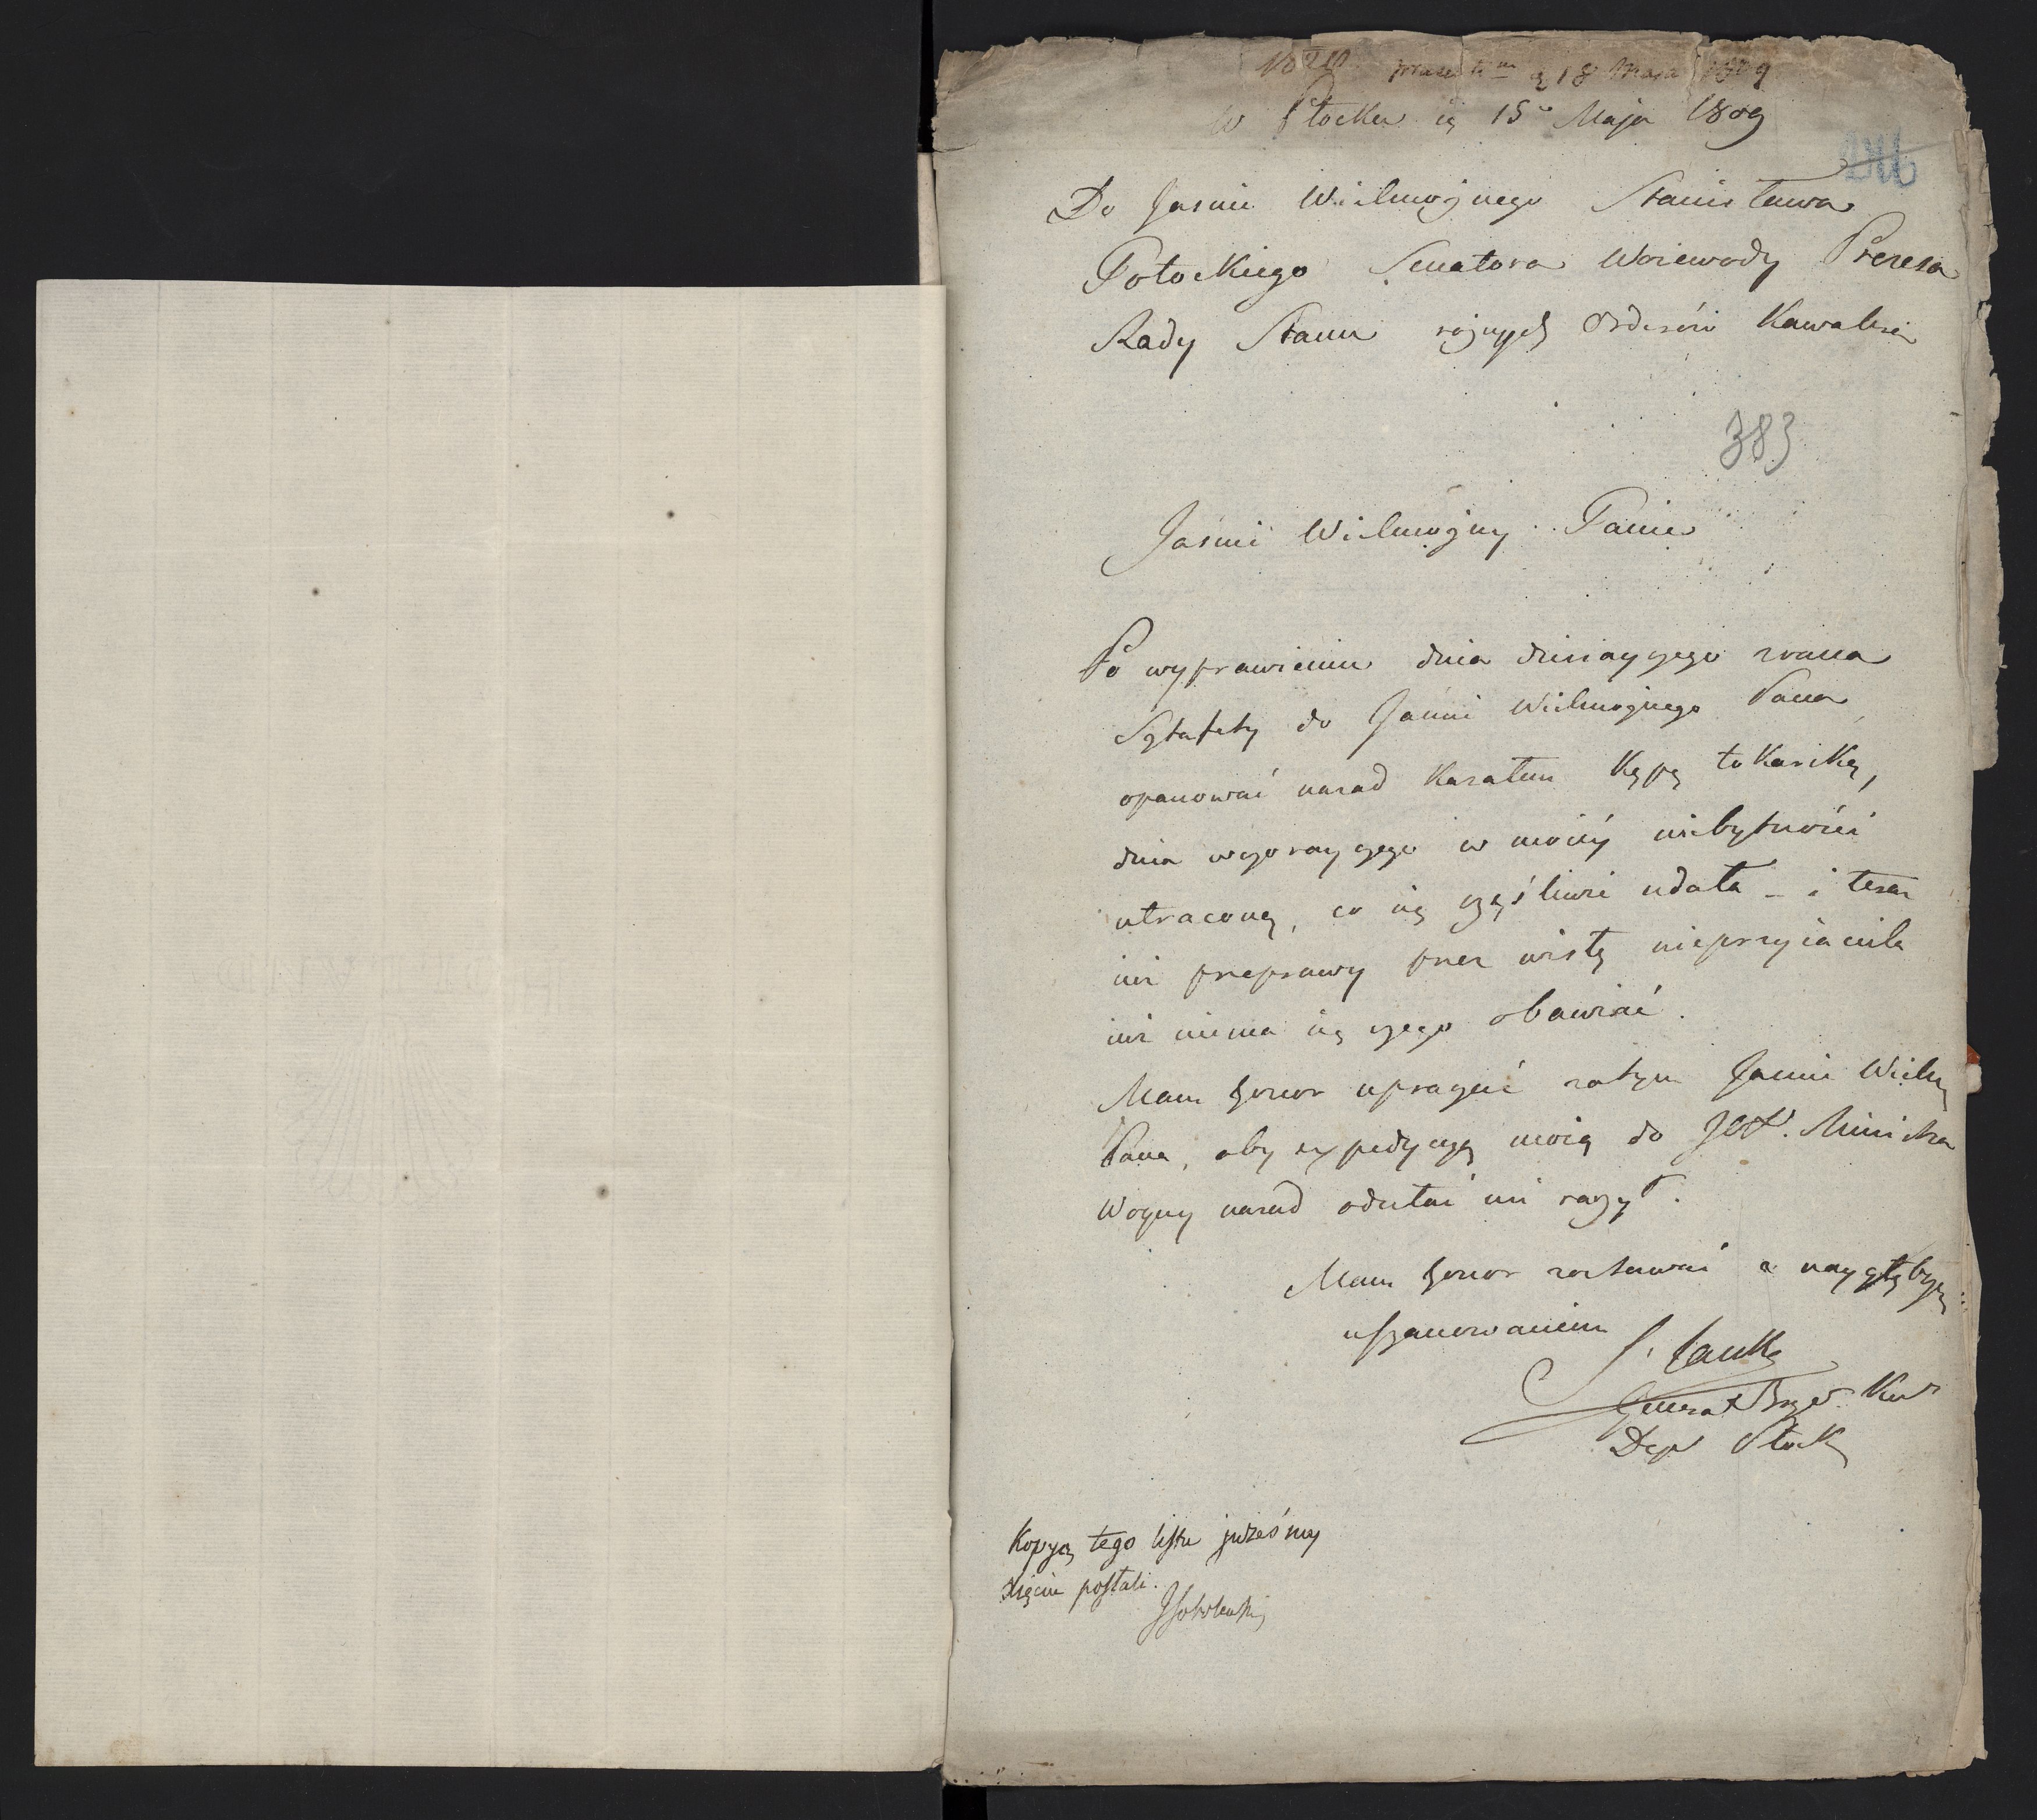 praesent m d 18 Maja 1809
w Płocku d 15º Maja 1809
246
Do Jasnie Wielmożnego Stanisława
Potockiego Senatora Woiewody Prezesa
Rady Stanu rożnych Orderów Kawalera
383
Jasnie Wielmożny Panie
Po wyprawieniu dnia dzisiayszego zrana
Sztafety do Jasnie Wielmożnego Pana
opanować nazad kazałem Kępę tokarską,
dnia wczorayszego w moiéy niebytności
utraconą, co się szczęśliwie udało - i teraz
iuż przeprawy przez wisłę nieprzyiaciela
iuż niema się czego obawiać.
Mam honor upraszać zatym Jasnie Wielm
Pana, aby expedycyą moią do JW. Ministra
Woyny nazad odesłać mi raczył.
Mam honor zostawać z naygłębszym
uszanowaniem
J. Hauke
Generał Bryg. Kom
Dep Płock
Kopyą tego listu jużeśmy
Xięciu posłali.